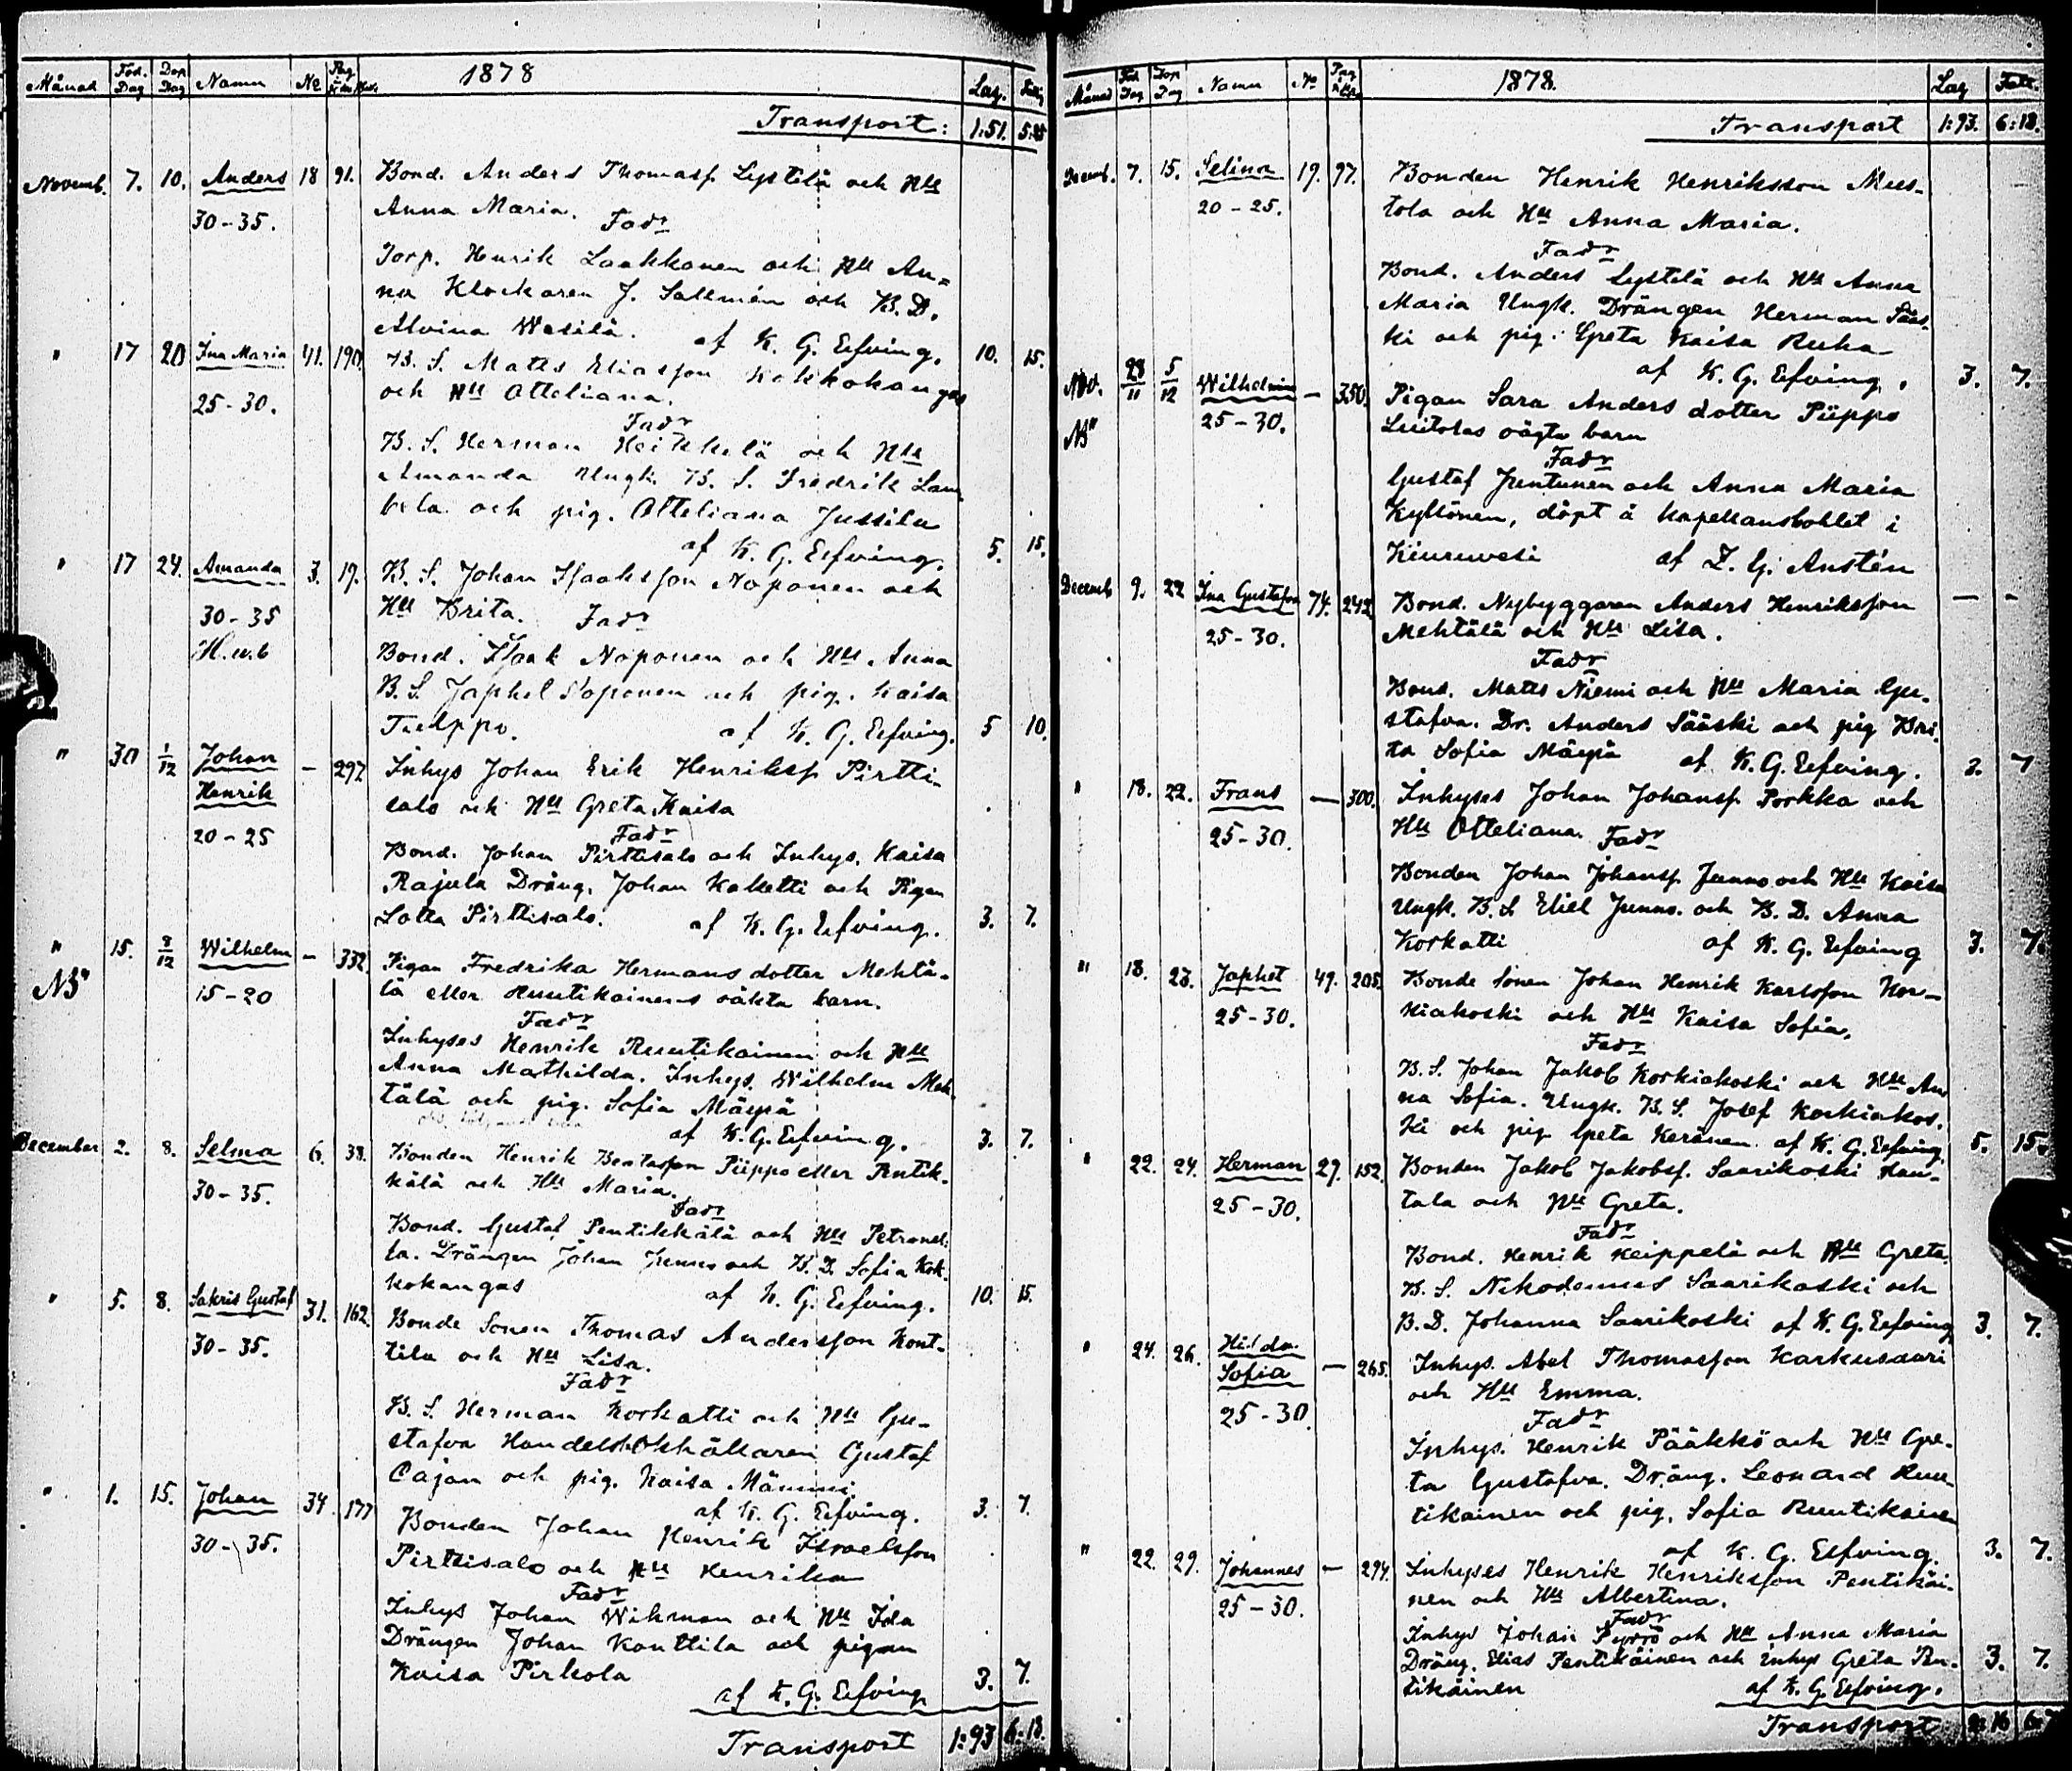 Månad Föd. Dag Dop Dag Namn No Pag 1878 Lag.
Transport: 1:51.
Novemb. 7. 10. Anders 18 91. Bond. Anders Thomasf. Lystilä och Hu
30-35. Anna Maria.
Fadr
Torp. Henrik Laakkonen och Hu An-
na Klockaren J. Sallmén och B. D.
Alvina Wesilä. af K. G. Eefving. 10. 15.
" 17 20 Ina Maria 41. 190. B. S. Matts Eliasson Kokkokangas
25-30. och Hu Otteliana.
Fadr
B. S. Herman Heikkelä och Hu
Amanda Ungk. B. S. Fredrik Lam
bela och pig. Otteliana Jussila
af K. G. Eefving. 5. 15.
" 17 24. Amanda 3. 19. B. S. Johan Isaaksson Noponen och
30-35 Hu Brita. Fadr
H.u.b Bond. Isaak Noponen och Hu Anna
B. S. Japhet Noponen och pig. Kaisa
Tielppo. af K. G. Eefving. 5 10.
" 30 1/12 Johan Henrik - 297 Inhys Johan Erik Henriksf. Pirtti-
salo och Hu Greta Kaisa
20-25 Fadr
Bond. Johan Pirttisalo och Inhys. Kaisa
Rajula Dräng. Johan Kaketti och Pigan
Lotta Pirttisalo. af K. G. Eefving. 3. 7.
" 15. 8/12 Wilhelm - 332. Pigan Fredrika Hermans dotter Mehtä-
NB 15-20 lä eller Ruutikainens oäkta barn.
Fadr
Inhyses Henrik Ruutikainen och Hu
Anna Mathilda. Inhys. Wilhelm Meh
tälä och pig. Sofia Mäyrä
af K. G. Eefving. 3. 7.
December 2. 8. Selma 6. 38. Bonden Henrik Bentsson Piippo eller Pentik-
30-35. kälä och Hu Maria.
Fadr
Bond. Gustaf Pentikkälä och Hu Petronel-
la. Drängen Johan Junno och B. D. Sofia Kok-
kokangas af K. G. Eefving. 10. 15.
" 5. 8. Sakris Gustaf 31. 162. Bonde Sonen Thomas Andersson Kont-
30-35. tila och Hu Lisa.
Fadr
B. S. Herman Korkatti och Hu Gu-
stafva Handelsbokhållaren Gustaf
Cajan och pig. Kaisa Männi.
af K. G. Eefving. 3. 7.
" 1. 15. Johan 34. 177 Bonden Johan Henrik Israelsson
30-35. Pirttisalo och Hu Henrika
Fadr
Inhys Johan Wikman och Hu Ida
Drängen Johan Konttila och pigan
Kaisa Pirkola
af K. G. Eefving 3. 7.
Transport 1:93 6:18.
Månad Föd Dag Dop Dag Namn No 1878. Lag
Transport 1:93. 6:18.
Decemb. 7. 15. Selina 19. 97. Bonden Henrik Henriksson Mus-
20-25. tola och Hu Anna Maria.
Fadr
Bond. Anders Lystilä och Hu Anna
Maria Ungk. Drängen Herman Sääs-
ki och pig. Greta Kaisa Ruha
af K. G. Eefving. 3. 7.
Nov. 28/11 5/12 Wilhelmina - 350. Pigan Sara Anders dotter Piippo
NB 25-30. Luitolas oägta barn
Fadr
Gustaf Juntunen och Anna Maria
Kyllönen, döpt å Kapellansbohlet i
Kiuruwesi af Z. G. Austén
- -
Decemb 9. 22 Ina Gustafva 74. 242 Bond. Nybyggaren Anders Henriksson
25-30. Mehtälä och Hu Lisa.
Fadr
Bond. Matts Niemi och Hu Maria Gu-
stafva. Dr. Anders Sääski och pig Bri-
ta Sofia Mäyrä af K. G. Eefving. 3. 7
" 18. 22. Frans - 300. Inhyses Johan Johansf. Porkka och
25-30. Hu Otteliana. Fadr
Bonden Johan Johansf. Junno och Hu Kaisa
Ungk. B. S. Eliel Junno. och B. D. Anna
Korkatti af K. G. Eefving 3. 7.
" 18. 23. Japhet 49. 205. Bonde sonen Johan Henrik Karlsson Kor-
25-30. kiakoski och Hu Kaisa Sofia.
Fadr
B. S. Johan Jakob Korkiakoski och Hu An
na Sofia. Ungk. B. S. Josef Korkiakos-
ki och pig Greta Keränen. af K. G. Eefving. 5. 15.
" 22. 24. Herman 27. 152. Bonden Jakob Jakobsf. Saarikoski Rau-
25-30. tala och Hu Greta.
Fadr
Bond. Henrik Keippelä och Hu Greta.
B. S. Nikodemus Saarikoski och
B. D. Johanna Saarikoski af K. G. Eefving 3. 7.
" 24. 26. Hilda Sofia - 265. Inhys. Abel Thomasson Karkusaari
25-30 och Hu Emma.
Fadr
Inhys. Henrik Pääkkö och Hu Gre-
ta Gustafva. Dräng. Leonard Ruu-
tikainen och pig. Sofia Ruutikainen
af K. G. Eefving. 3. 7.
" 22. 29. Johannes - 294. Inhyses Henrik Henriksson Pentikäi-
25-30. nen och Hu Albertina.
Fadr
Inhys Johan Pyrrö och Hu Anna Maria
Dräng. Elias Pentikäinen och Inhys Greta Pen-
tikäinen af K. G. Eefving. 3. 7.
Transport